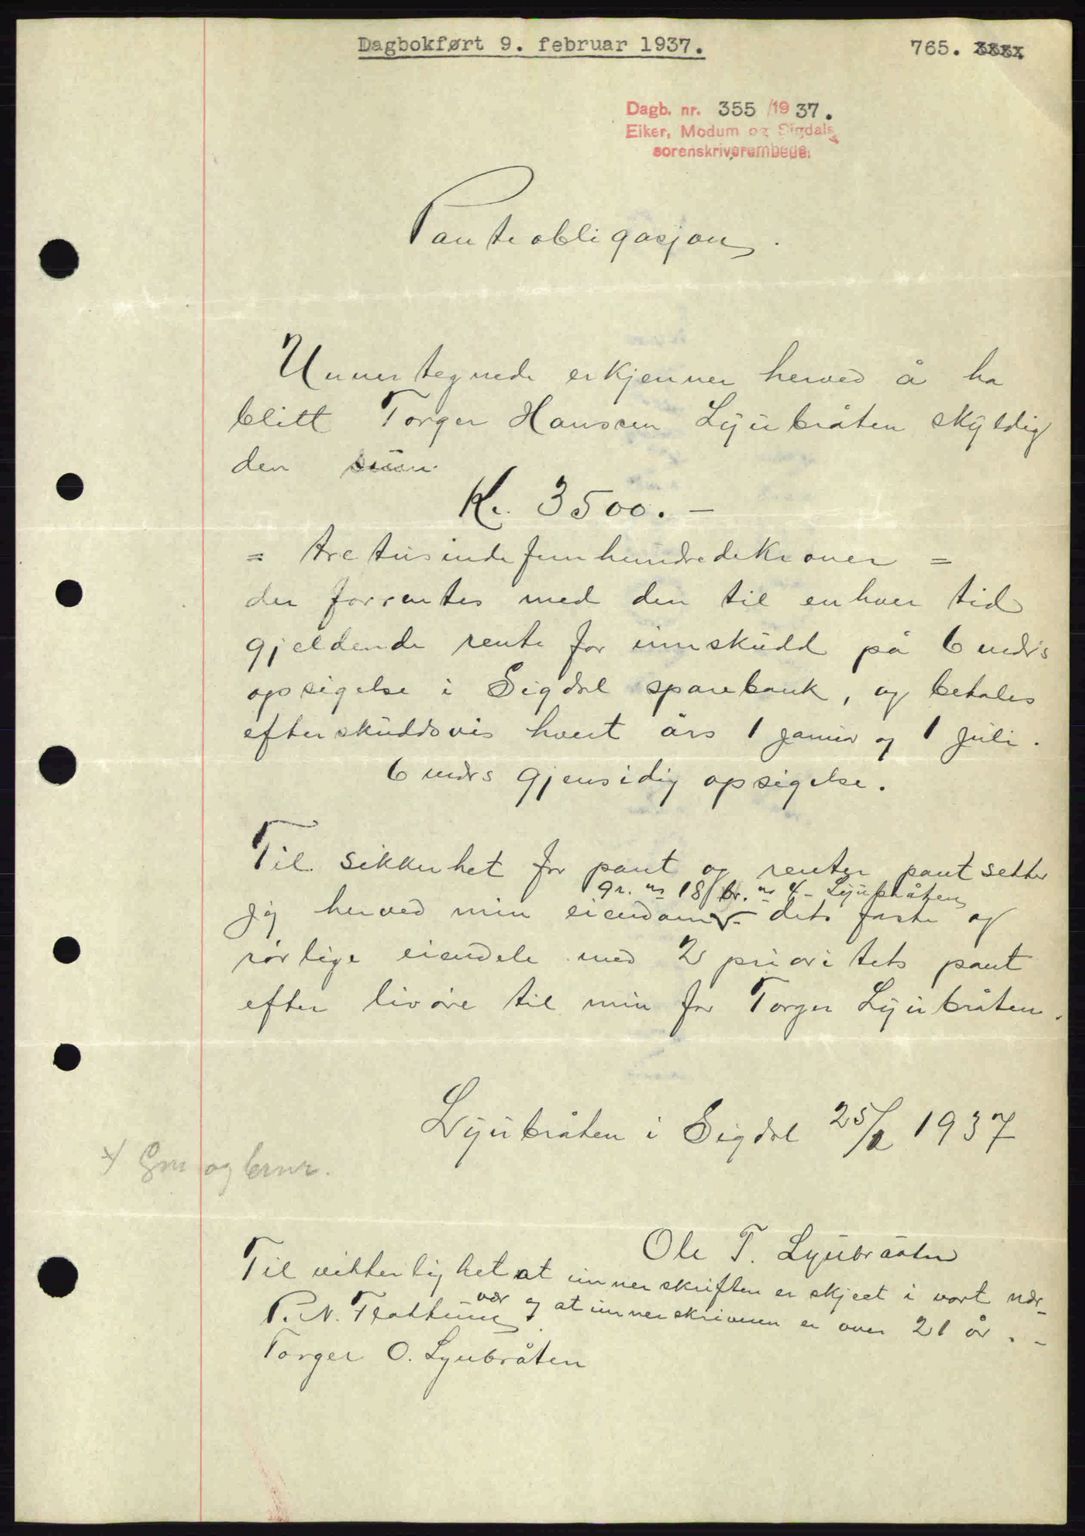 Dagbokført 9. februar 1937.
765.
Dagb. nr. 355 /19 37.
Eiker, Modum og Sigdals
sorenskriverembede.
Panteobligasjon.
Unnertegnede erkjenner herved å ha
blitt Torger Hanssen Lyubråten skyldig
den sum
Kr. 3500. -
= tretusindefemhundredekroner =
der forrentes med den til enhver tid
gjeldende rente for innskudd på 6 mdrs
opsigelse i Sigdal sparebank, og betales
efterskuddsvis hvert års 1 januar og 1 juli.
6 mdrs gjensidig opsigelse.
Til sikkerhet for pant og renter pantsetter
gr. nr 18 br. nr 4 - Lyubråten
jeg herved min eiendom dets faste og
rørlige eiendele med 2 prioritets pant
efter livøre til min far Torger Lyubråten.
Lyubråten i Sigdal 25/1 1937
x/ Gnr og brnr.
Ole T. Lyubråten
Til vitterlighet at unnerskriften er skjeet i vort nær-
vær og at unnerskriveren er over 21 år. -
P. N. Flattum
Torger O. Lyubråten